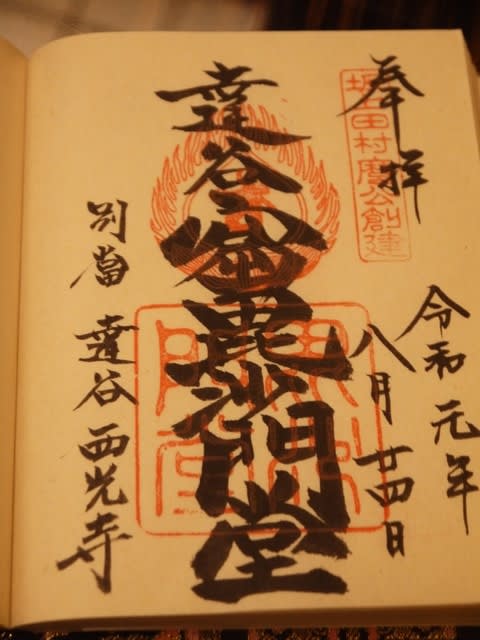 奉拝
坂上田村麿公創建
令和元年
八月廿四日
達谷窟毘沙門堂
別當 達谷西光寺